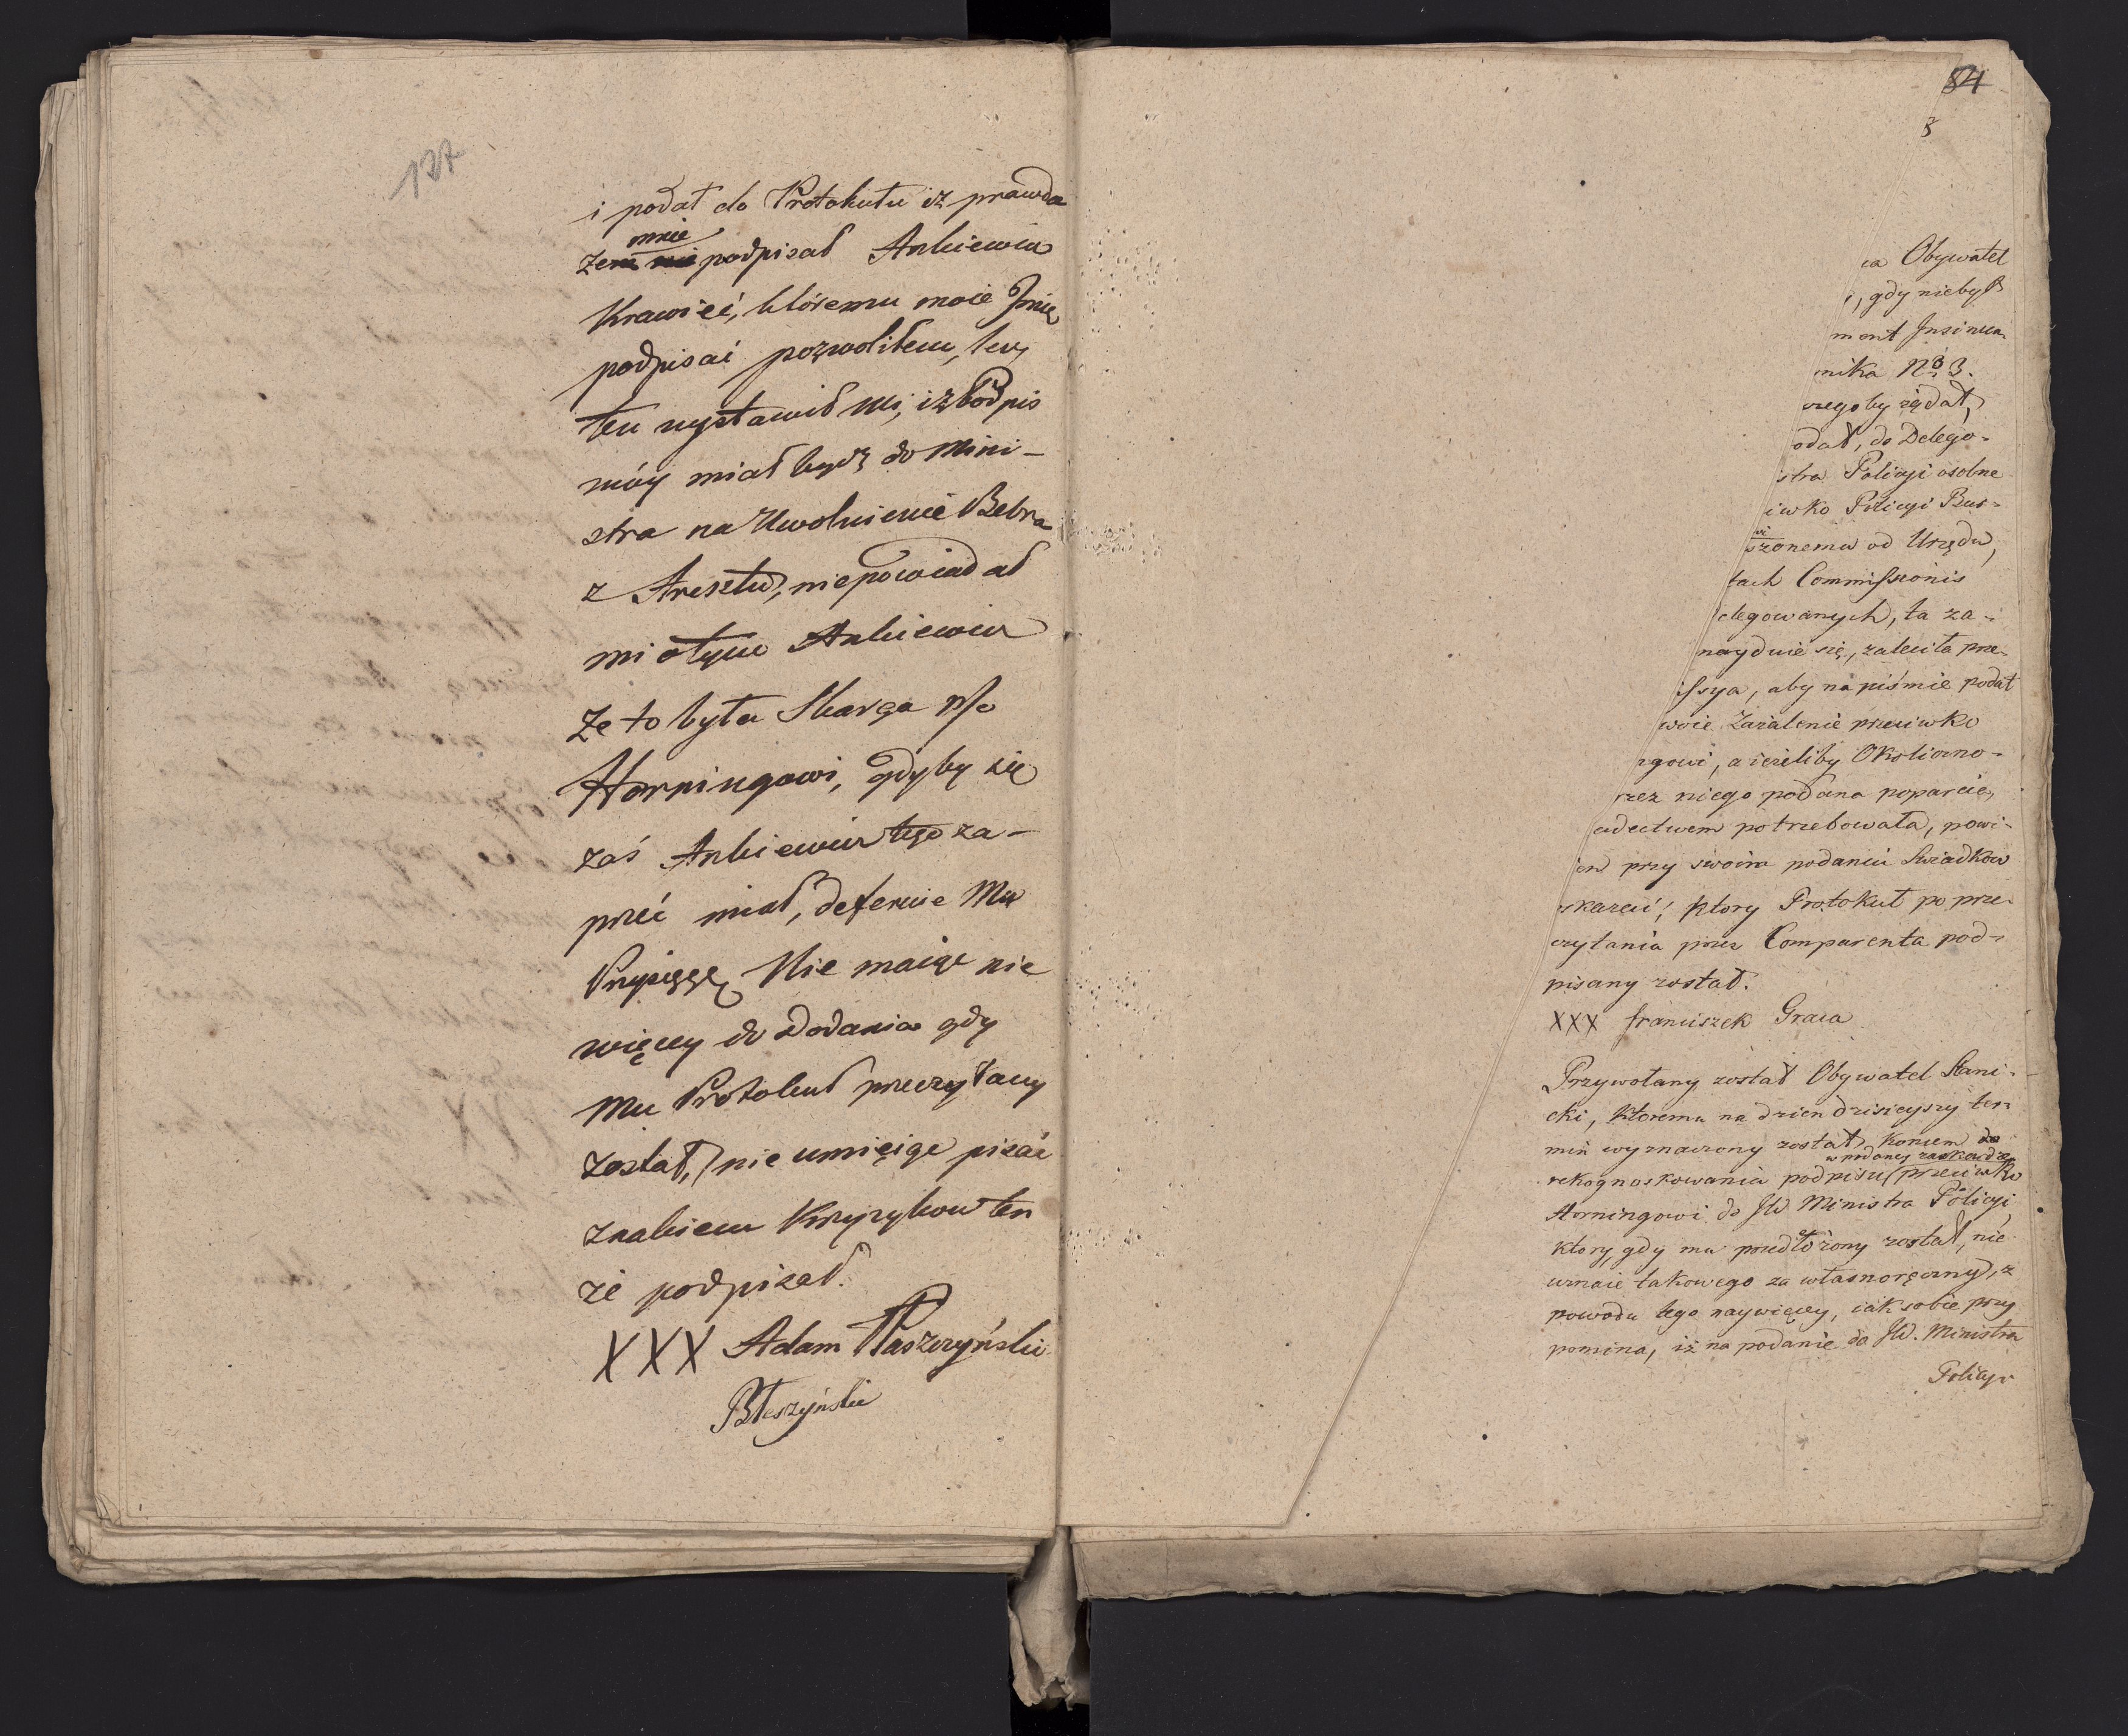 127
i podał do Protokułu iż prawda
mnie
że podpisał Ankiewicz
Krawiec, któremu moie Jmię
podpisać pozwoliłem, lecz
ten wystawił mi, iż Podpis
móy miał bydź do Mini-
stra na Uwolnienie Bebra
z Aresztu, nie powiadał
mi o tym Ankiewicz
że to była Skarga p/o
Horningowi, gdyby się
zaś Ankiewicz tego za-
przeć miał, deferuie Mu
Przysięgę. Nie maiąc nic
więcey do Dodania gdy
mu Protokuł przeczytany
został, nie umieiąc pisać
znakiem Krzyzykow ten
że podpisał.
XXX Adam Płaszczyński
Błeszyński
84
8
ca Obywatel
, gdy niebył
ment Jnsinua
nika No 3.
czegoby żądał,
odał, do Delego-
stra Policyi osobne
iwko Policyi Bur-
szonemu od Urzędu,
tach Commissionis
elegowanych, ta za-
nayduie się, zaleciła prze-
issya, aby na piśmie podał
woie Zażalenie przeciwko
ngowi, a ieżeliby Okoliczno-
rzez niego podana poparcie,
adectwem potrzebowała, powi-
ien przy swoim podaniu Swiadkow
skazać, ktory Protokuł po prze-
czytaniu przez Comparenta pod-
pisany został.
XXX franciszek Graca
Przywołany został Obywatel Stani-
cki, ktoremu na dzien dzisieyszy ter-
min wyznaczony został, koncem do
w podaney zaskardze
rekognoskowania podpisu przeciwko
Horningowi do JW Ministra Policyi
ktory, gdy mu przedłożony został, nie
uznaie takowego za własnoręczny, z
powodu tego naywięcey, iak sobie przy
pomina, iż na podanie do JW. Ministra
Policyi